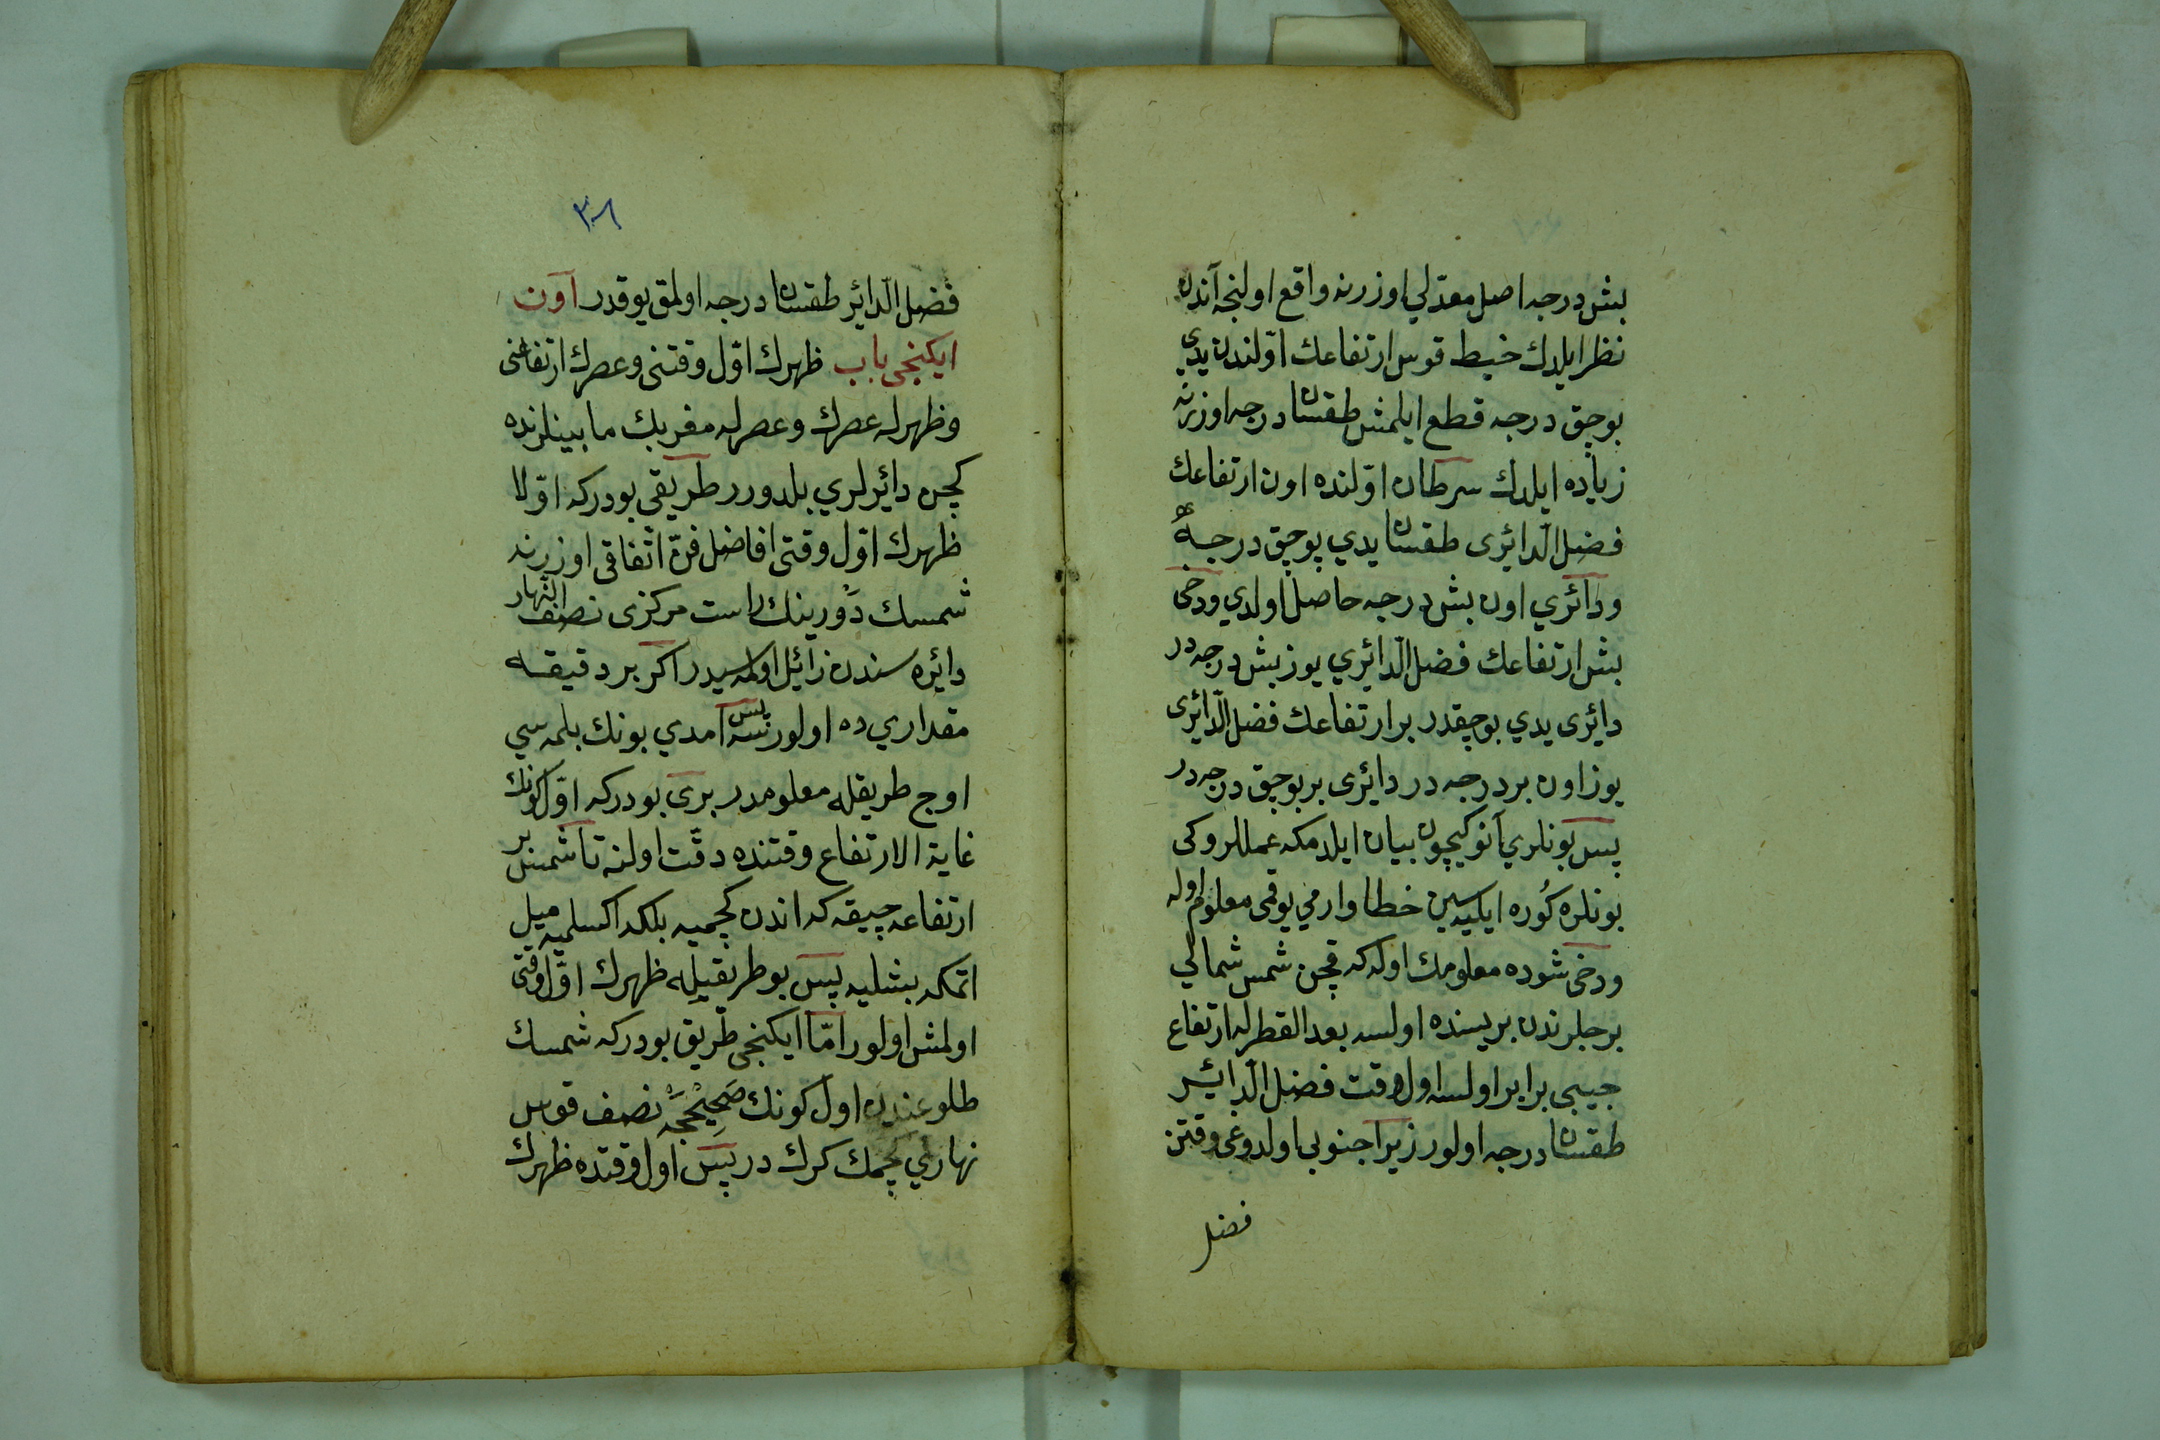 بش درجه اصل معدّلي اوزرنه واقع اولنجه آندن
نظر ايلدك خيط قوس ارتفاعك اوّلندن يدي
بوچق درجه قطع ايلمش طقسان درجه اوزرنه
زياده ايلدك سرطان اوّلنده اون ارتفاعك
فضل الدّائرى طقسان يدي بوچق درجه
ودائري اون بش درجه حاصل اولدي ودخى
بش ارتفاعك فضل الدّائري يوز بش درجه در
دائرى يدي بوچقدر بر ارتفاعك فضل الدّائرى
يوز اون بر درجه در دائرى بر بوچق درجه در
پس بونلري آنوكيچون بيان ايلدمكه عمللروكى
بونلره كُوره ايليه سين خطا وارمي يوقمى معلوم اوله
ودخى شوده معلومك اوله كه قچن شمس شمالي
برجلرندن بريسنده اولسه بعد القطرله ارتفاع
جيبى برابر اولسه اول وقت فضل الدّائر
طقسان درجه اولور زيرا جنوبى اولدوغى وقتن
فضل
٣٠٦
فضل الدّائر طقسان درجه اولمق يوقدر آون
ايكنجى باب ظهرك اوّل وقتنى وعصرك ارتفاعنى
وظهرله عصرك وعصرله مغربك مابينلرنده
كچن دائرلري بلدورر طريقى بودركه اوّلا
ظهرك اوّل وقتى افاضل فنّ اتّفاقى اوزرنه
شمسك دَورينك راست مركزى نصف النّهار
دائره سندن زائل اولمه سيدر اكر بر دقيقه
مقداري ده اولورسه پس امدي بونك بلمه سي
اوچ طريقله معلومدر برى بودركه اوّل كونك
غاية الارتفاع وقتنده دقّت اولنه تا شمس بر
ارتفاعه چيقه كه اندن كچميه بلكه اكسلميه ميل
اتمكه بشليه پس بو طريقيله ظهرك اوّل وقتى
اولمش اولور امّا ايكنجى طريق بودركه شمسك
طلوعندن اول كونك صَحِيْحْجَه نصف قوس
نهاري كچمك كرك در پس اول وقتده ظهرك